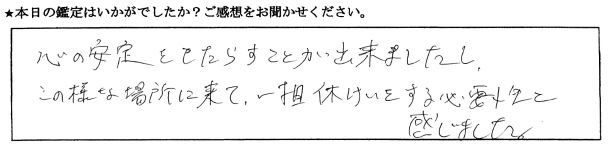 ★本日の鑑定はいかがでしたか？ご感想をお聞かせください。
心の安定をもたらすことが出来ましたし、
この様な場所に来て、一担休けいをする必要性を
感じました。